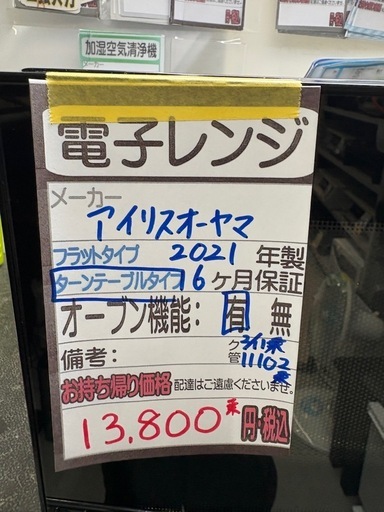 加湿空気清浄機
メーカー
電子レンジ
メーカー
アイリスオーヤマ
フラットタイプ 2021 年製
ターンテーブルタイプ 6 ヶ月保証
オーブン機能: 有 無
備考:
管11102
お持ち帰り価格 配達はご遠慮くださいませ。
13,800 円・税込